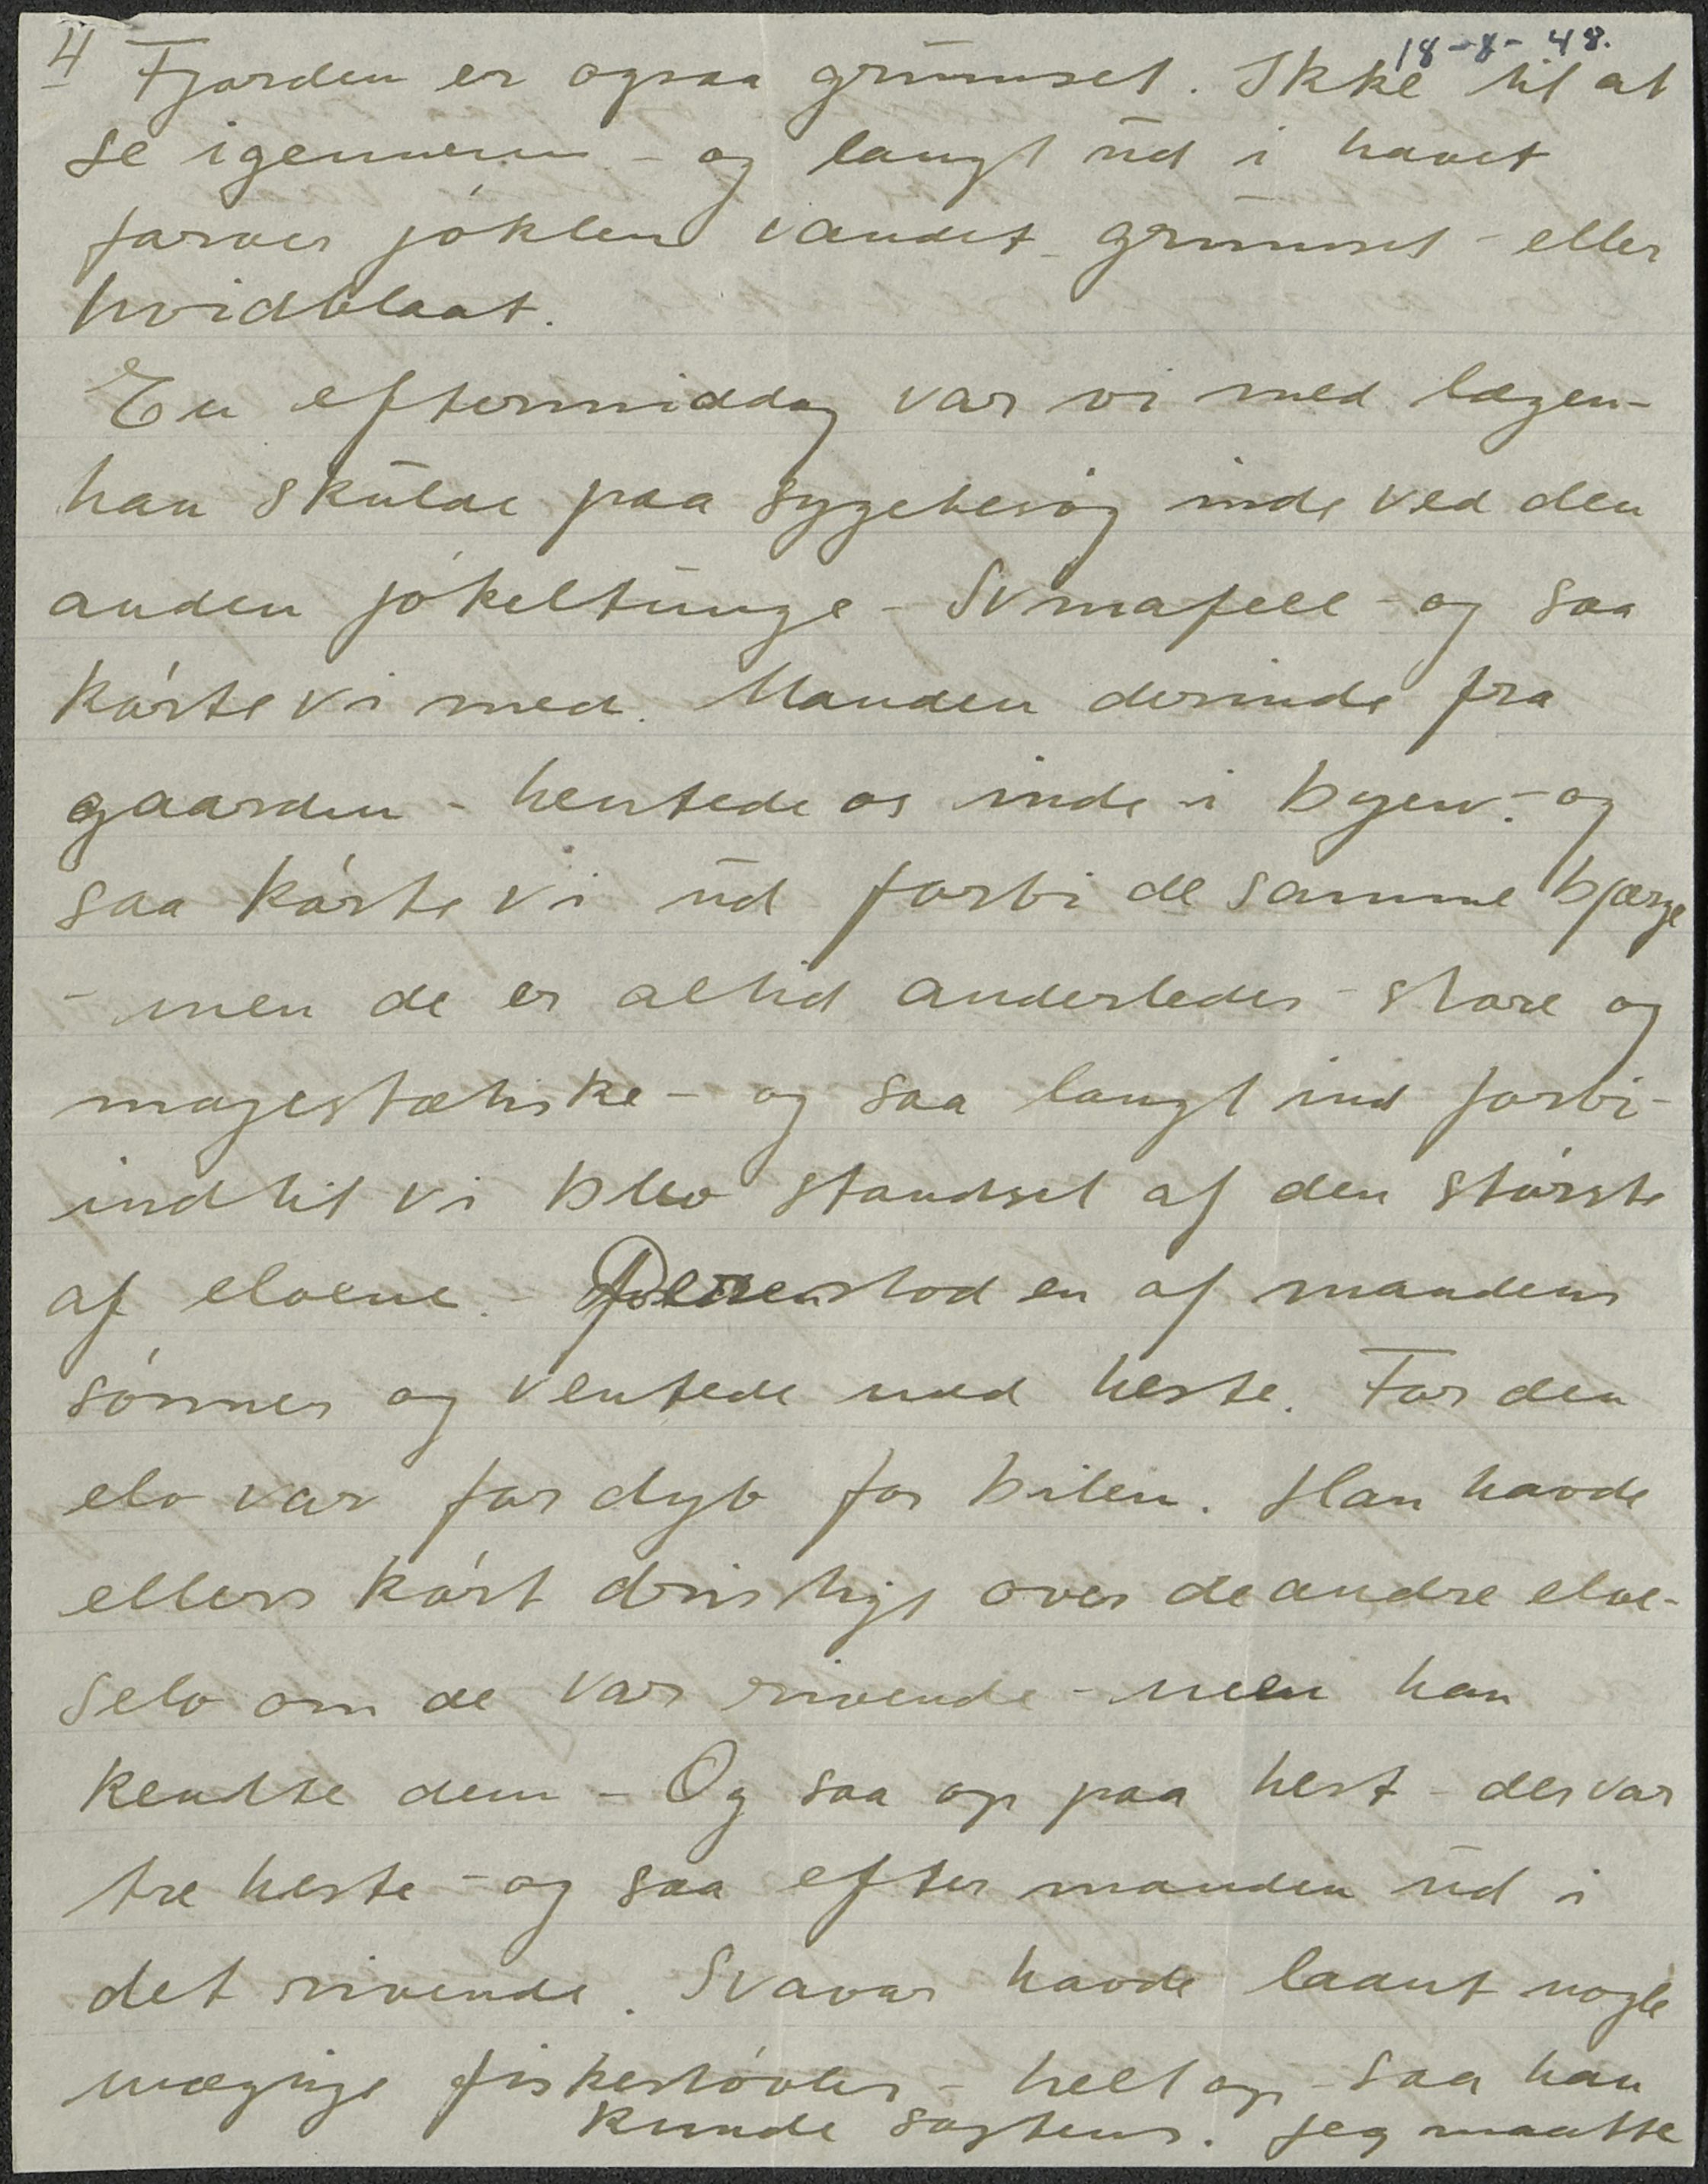 4 18-8-48.
Fjorden er ogsaa grumset. Ikke til at
se igennem - og langt ud i havet
farver jóklen vandet grumset - eller
hvidblaat.
En eftermiddag var vi med lægen -
han skulde paa sygebesóg inde ved den
anden jókeltunge - Svinafell - og saa
kórte vi med. Manden derinde fra
gaarden - hentede os inde i byen - og
saa kórte vi ud forbi de samme bjærge
- men de er altid anderledes - store og
magestætiske - og saa langt ind forbi -
indtil vi blev standset af den stórste
af elvene. - stod en af mandens
sónner og ventede med heste. For den
elv var for dyb for bilen. Han havde
ellers kórt dristigt over de andre elve -
selv om de var rivende - men han
kendte dem - Og saa op paa hest - der var
tre heste - og saa efter manden ud i
det rivende. Svavar havde laant nogle
mægtige fiskestóvler - helt op - saa han
kunde sagtens. Jeg maatte